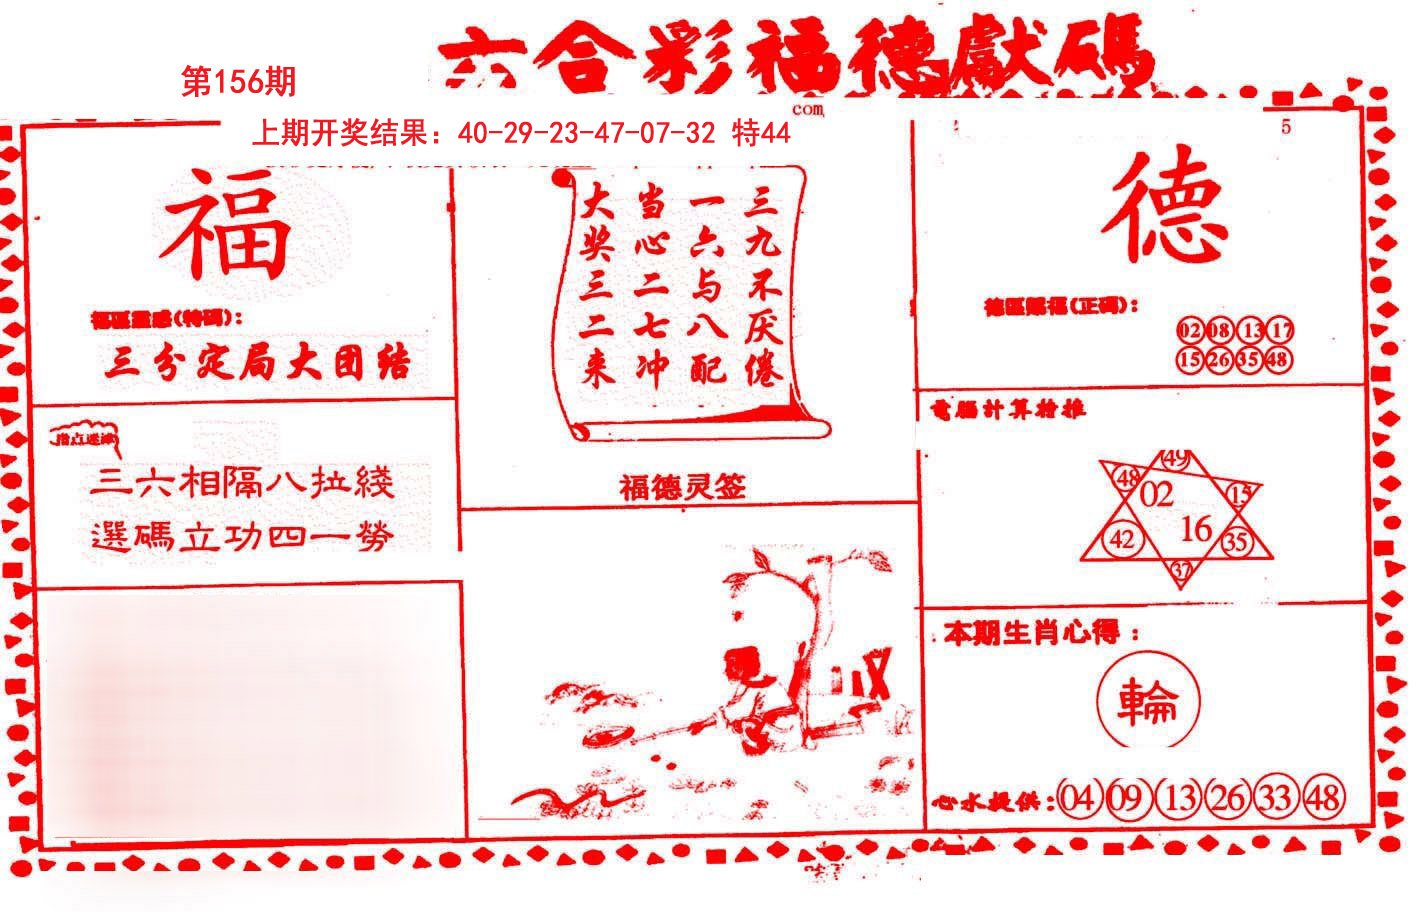 六合彩福德獻碼
第156期
com
上期开奖结果：40-29-23-47-07-32 特44
5
福
福區靈感(特碼)：
三分定局大团结
指点迷津
三六相隔八拉綫
選碼立功四一勞
三九不厌倦
一六与八配
当心二七冲
大奖三二来
福德灵签
德
德區賜福(正碼)：
02 08 13 17
15 26 35 48
電腦計算特推
49
48 02 15
42 16 35
37
本期生肖心得：
輪
心水提供：04 09 13 26 33 48